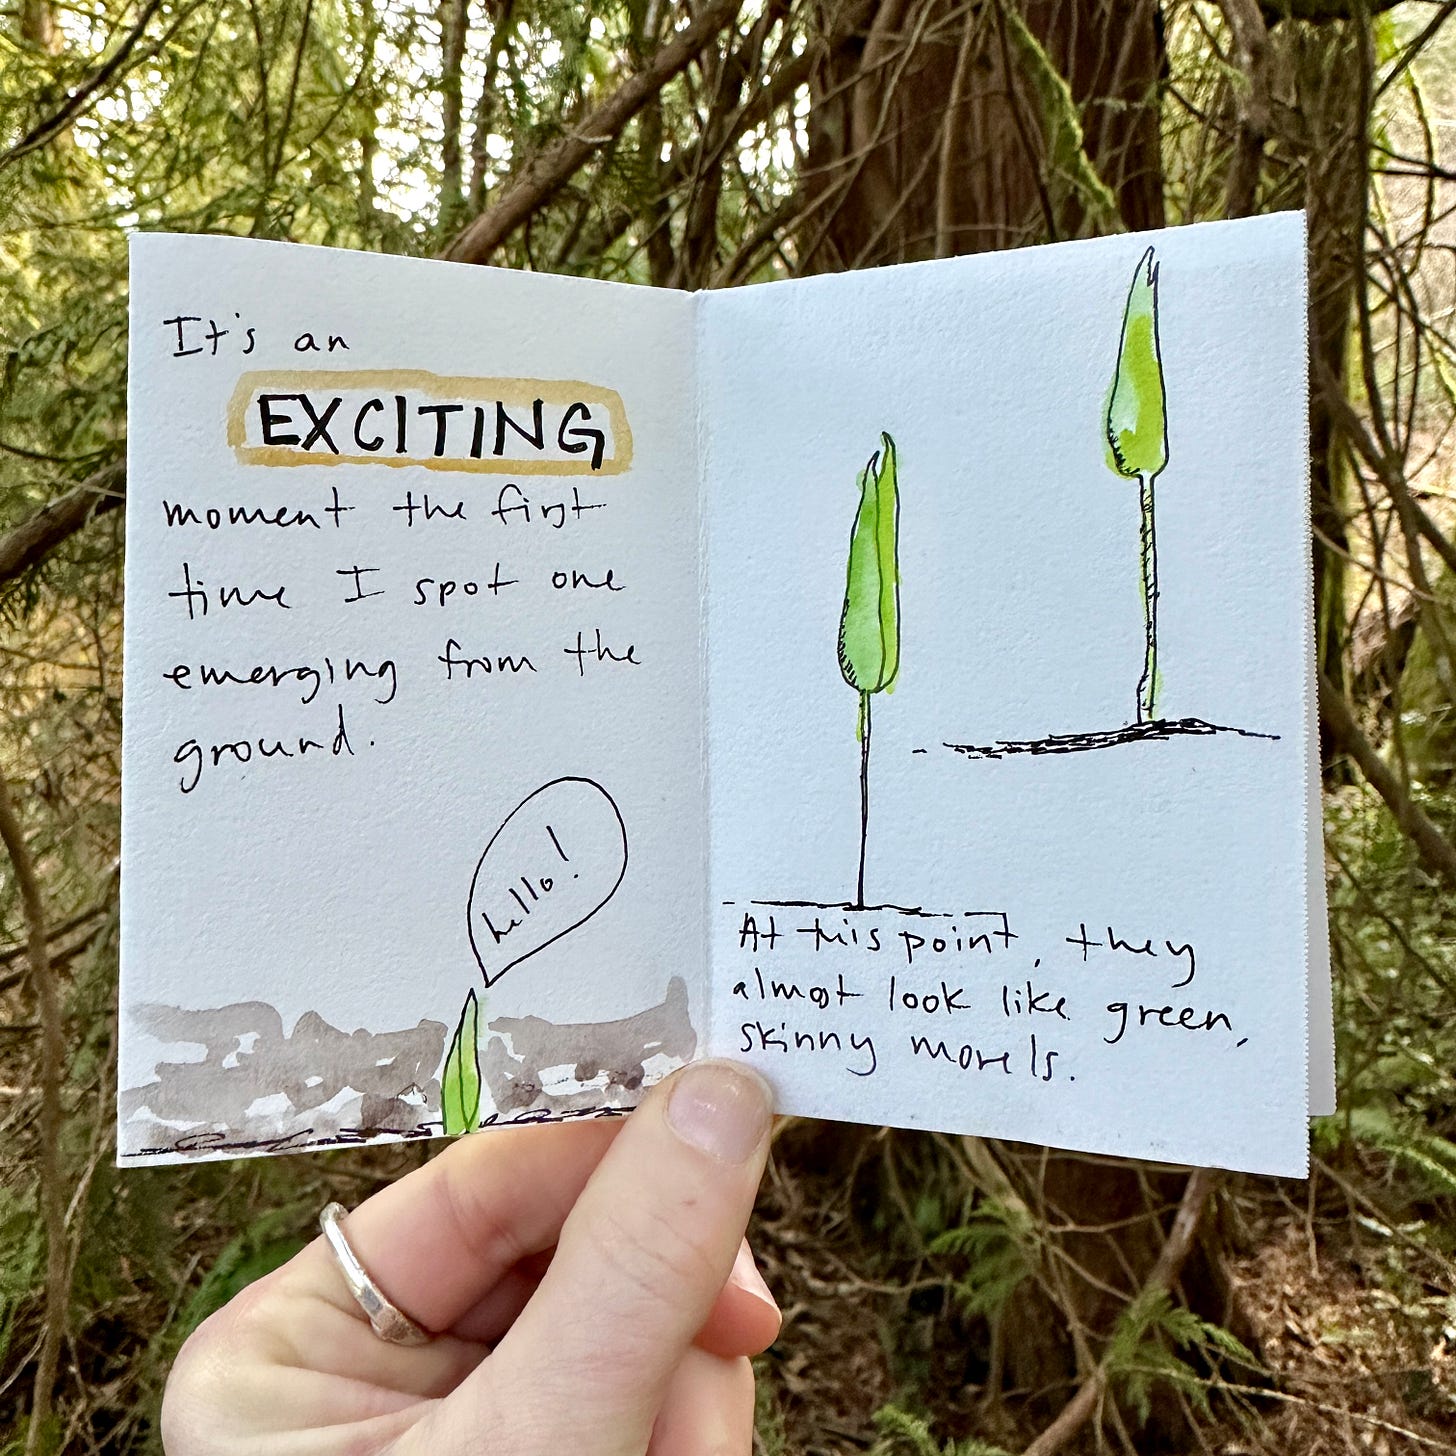 It's an
EXCITING
moment the first
time I spot one
emerging from the
ground.
hello!
At this point, they
almost look like green,
skinny morels.